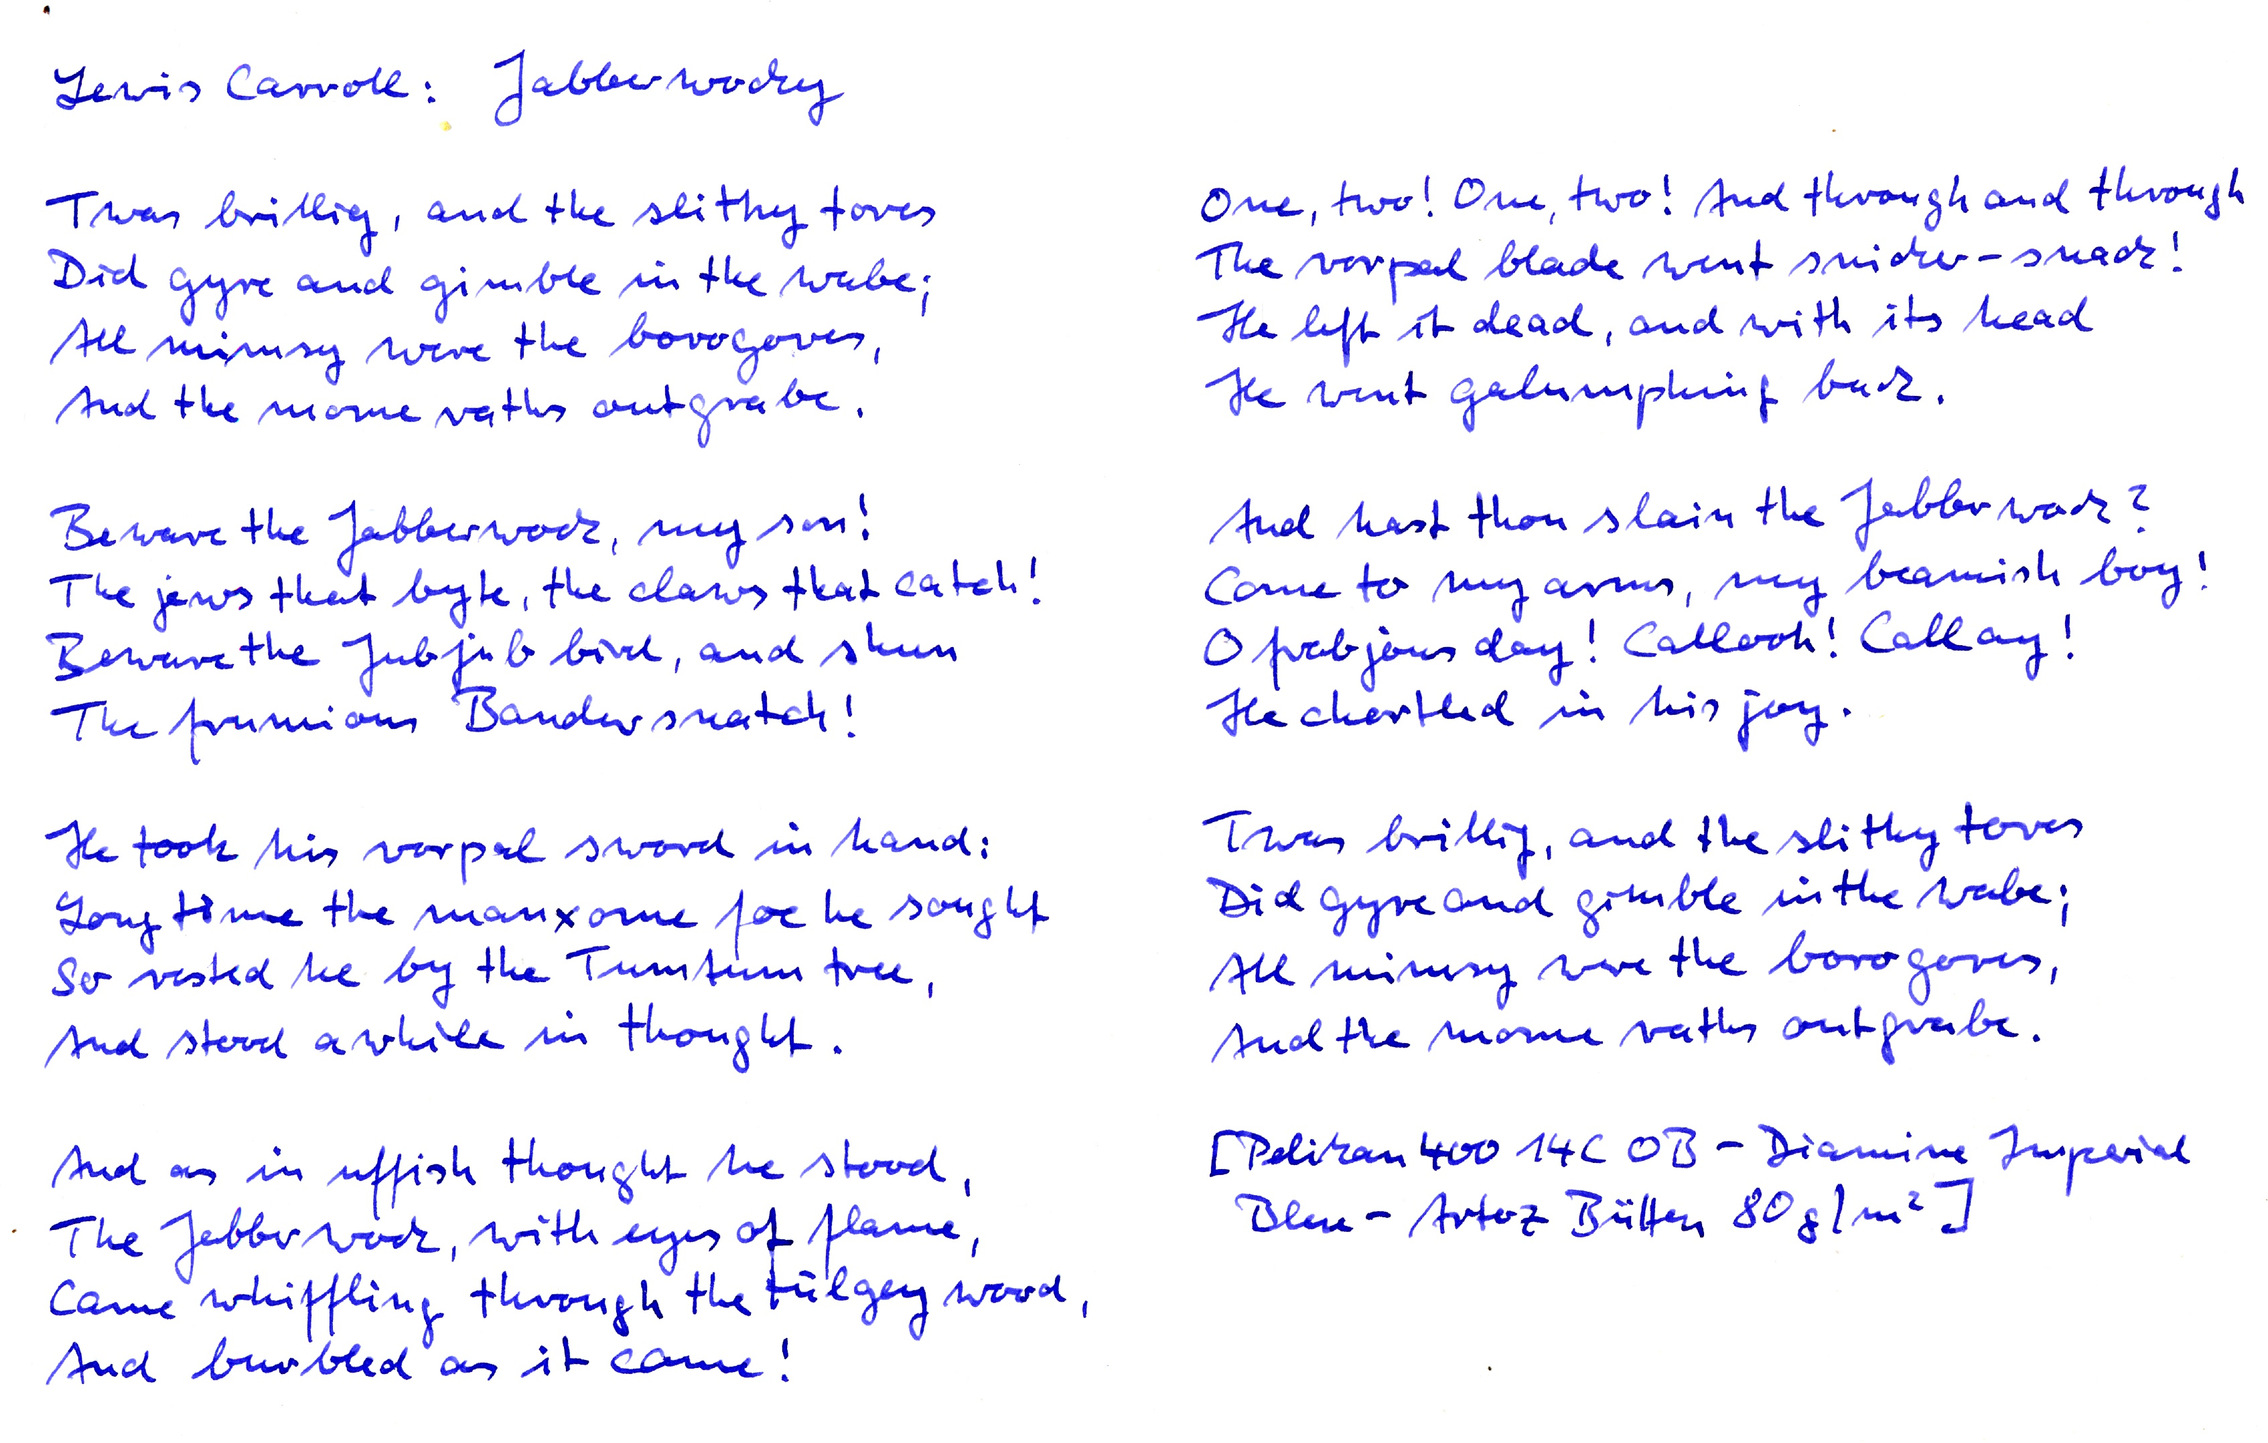 Lewis Carroll: Jabberwocky
Twas brillig, and the slithy toves
Did gyre and gimble in the wabe;
All mimsy were the borogoves,
And the mome raths outgrabe.
Beware the Jabberwock, my son!
The jaws that byte, the claws that catch!
Beware the Jubjub bird, and shun
The frumious Bandersnatch!
He took his vorpal sword in hand:
Long time the manxome foe he sought
So rested he by the Tumtum tree,
And stood awhile in thought.
And as in uffish thought he stood,
The Jabberwock, with eyes of flame,
Came whiffling through the tulgey wood,
And burbled as it came!
One, two! One, two! And through and through
The vorpal blade went snicker-snack!
He left it dead, and with its head
He went galumphing back.
And hast thou slain the Jabberwock?
Come to my arms, my beamish boy!
O frabjous day! Callooh! Callay!
He chortled in his joy.
Twas brillig, and the slithy toves
Did gyre and gimble in the wabe;
All mimsy were the borogoves,
And the mome raths outgrabe.
[Pelikan 400 14C OB - Diamine Imperial
Blue - Artoz Bütten 80g/m²]